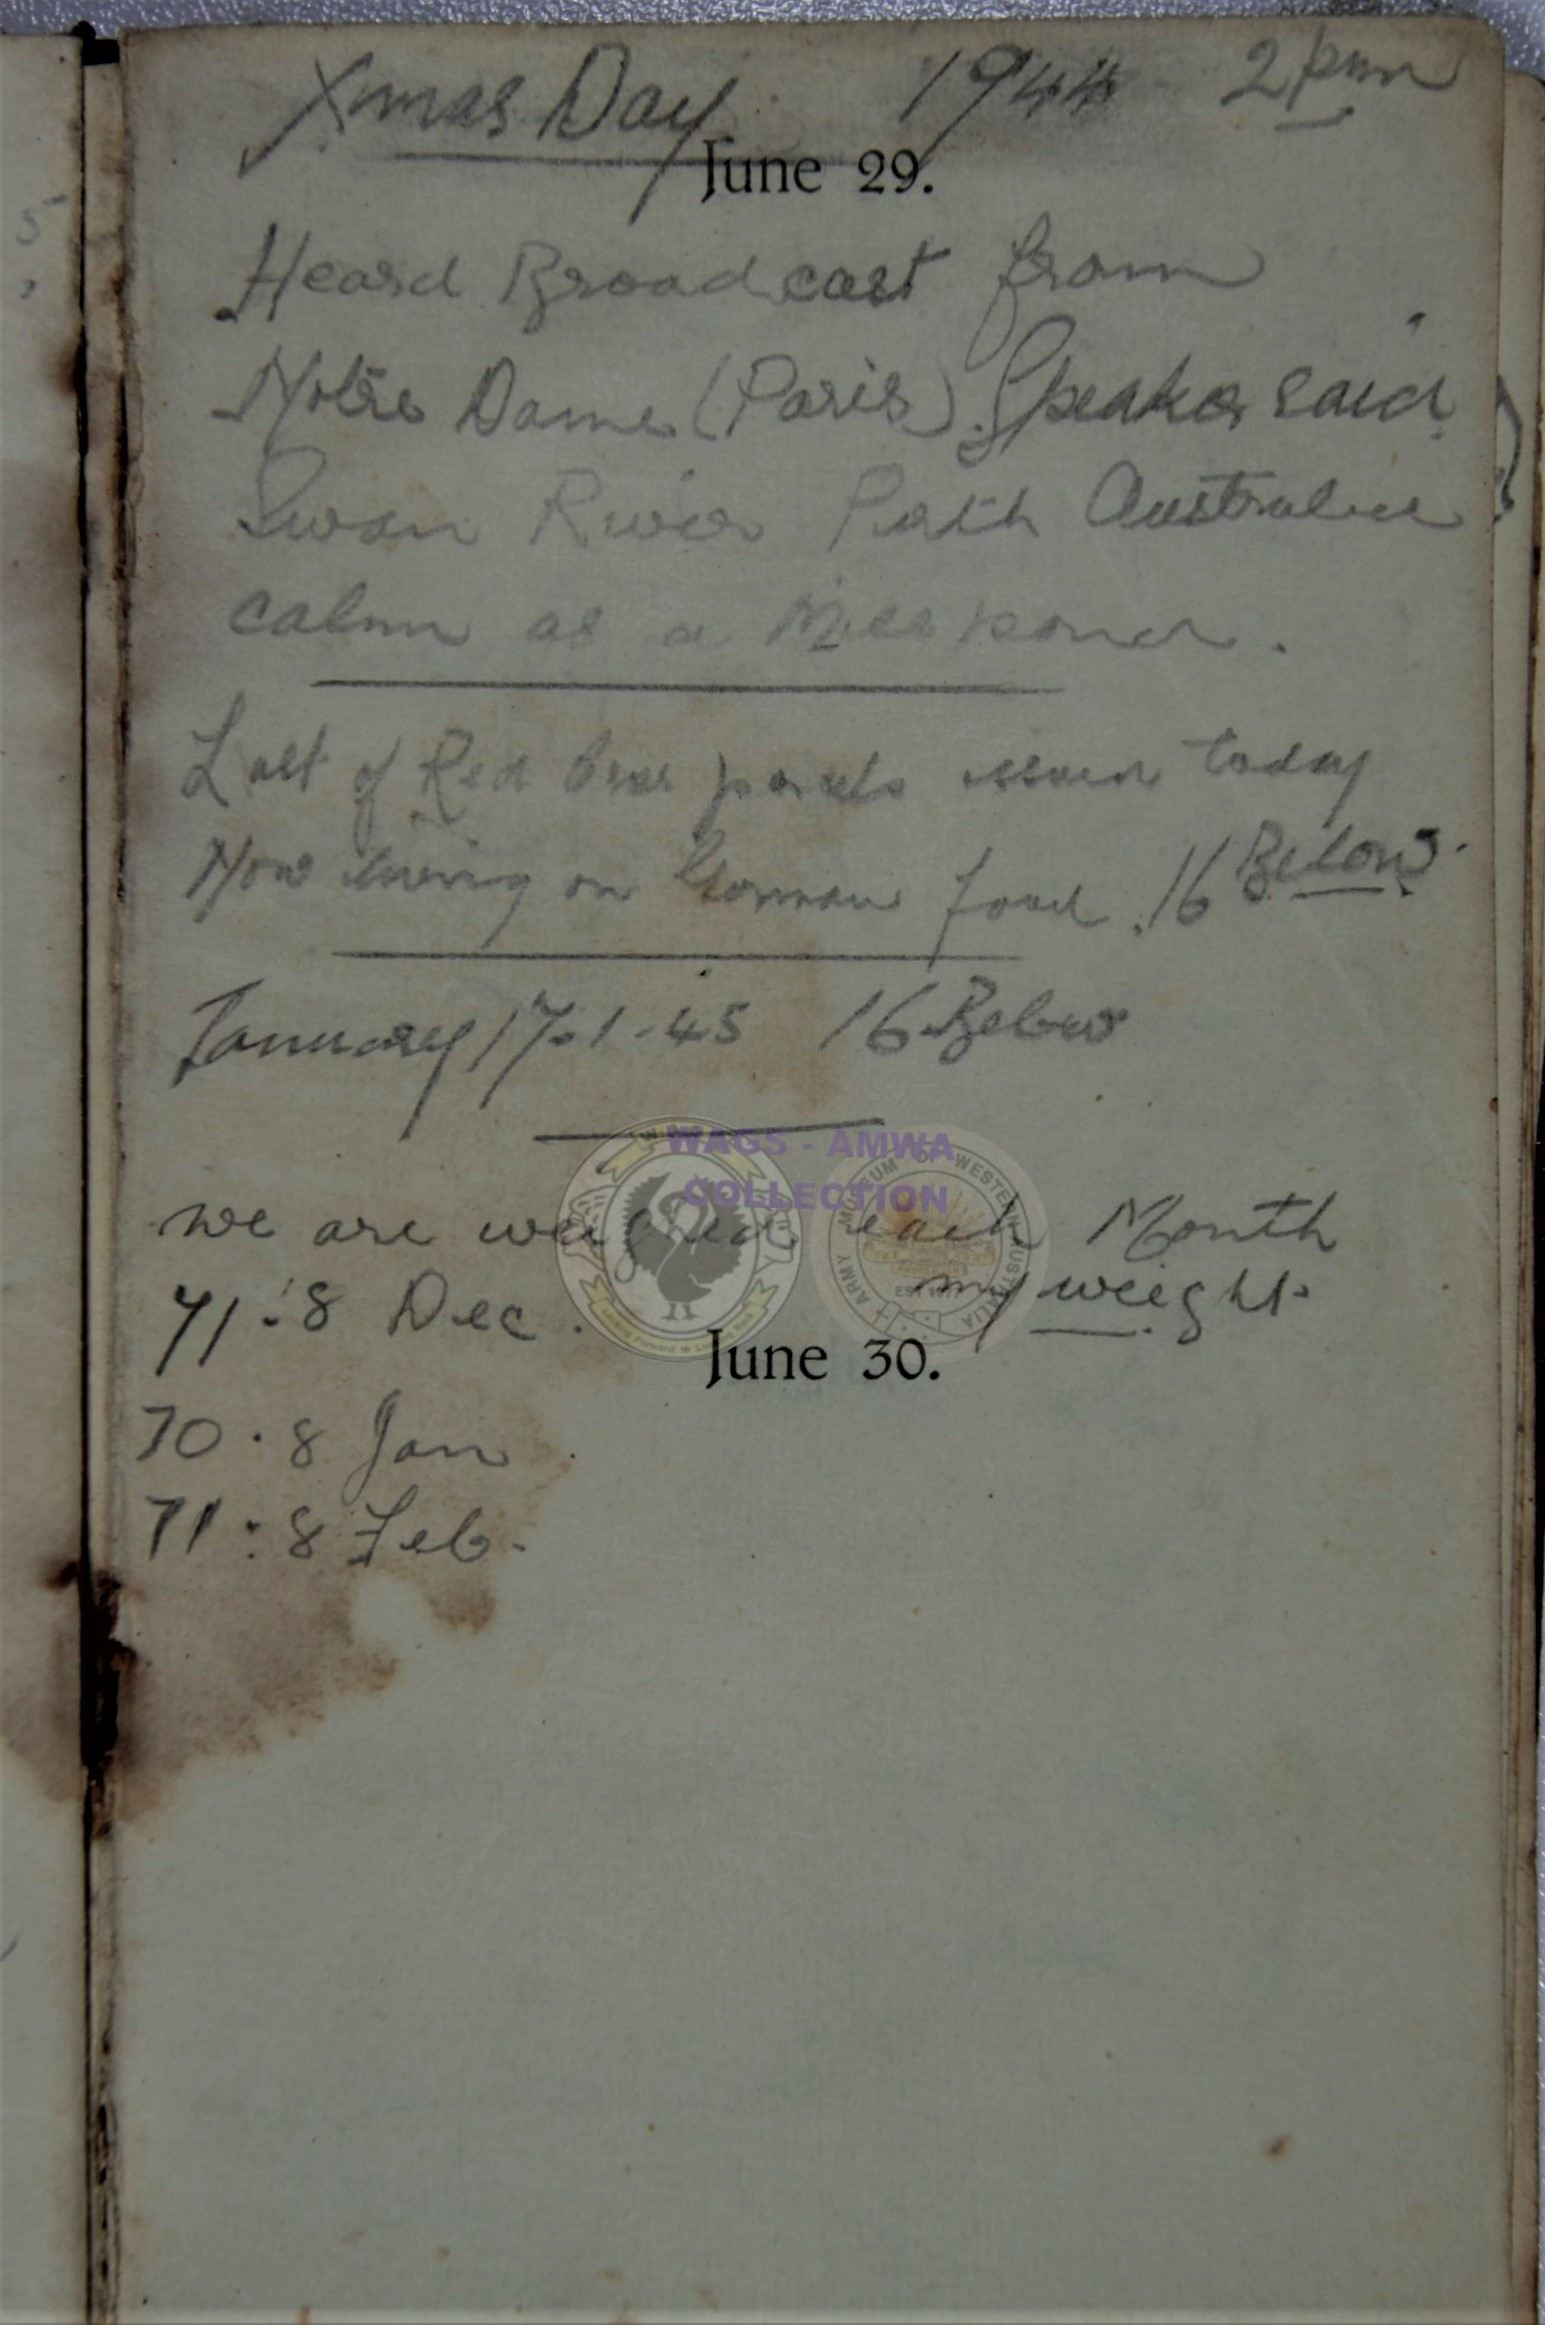 Xmas Day 1944 2 pm
June 29.
Heard Broadcast from
Notre Dame (Paris). Speaker said
Swan River Perth Australia
calm as a Mill pond.
Last of Red Cross parcels issued today
Now living on German food. 16 Below.
January 17.1.45 16 Below
WAGS - AMWA
COLLECTION
we are weighed each Month
71:8 Dec. my weight.
June 30.
70.8 Jan
71:8 Feb.